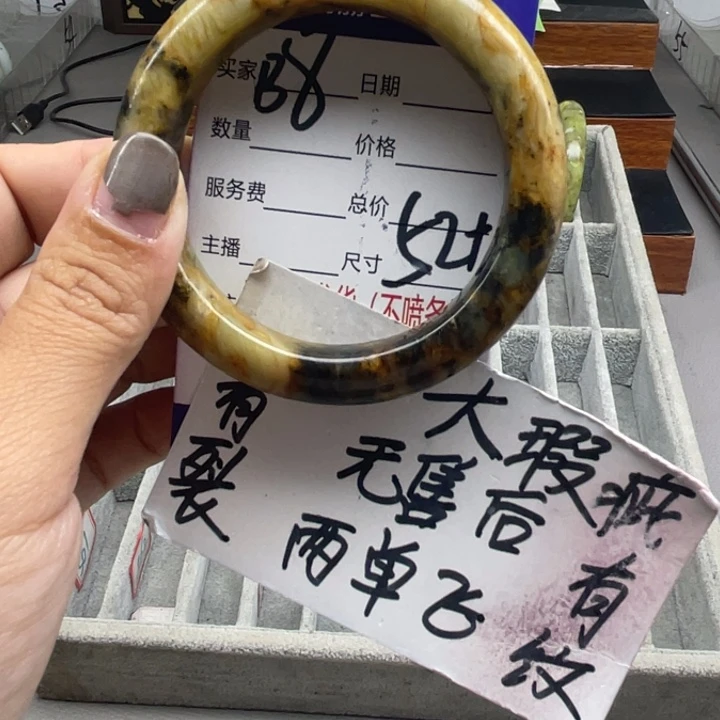 买家 日期
数量 价格
服务费 总价
主播 尺寸 52+
(不喷
大瑕疵有纹
有裂
无售后
两单飞